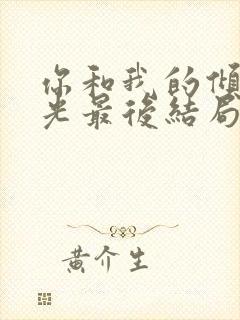 你和我的傾
光最後結局
黃介生